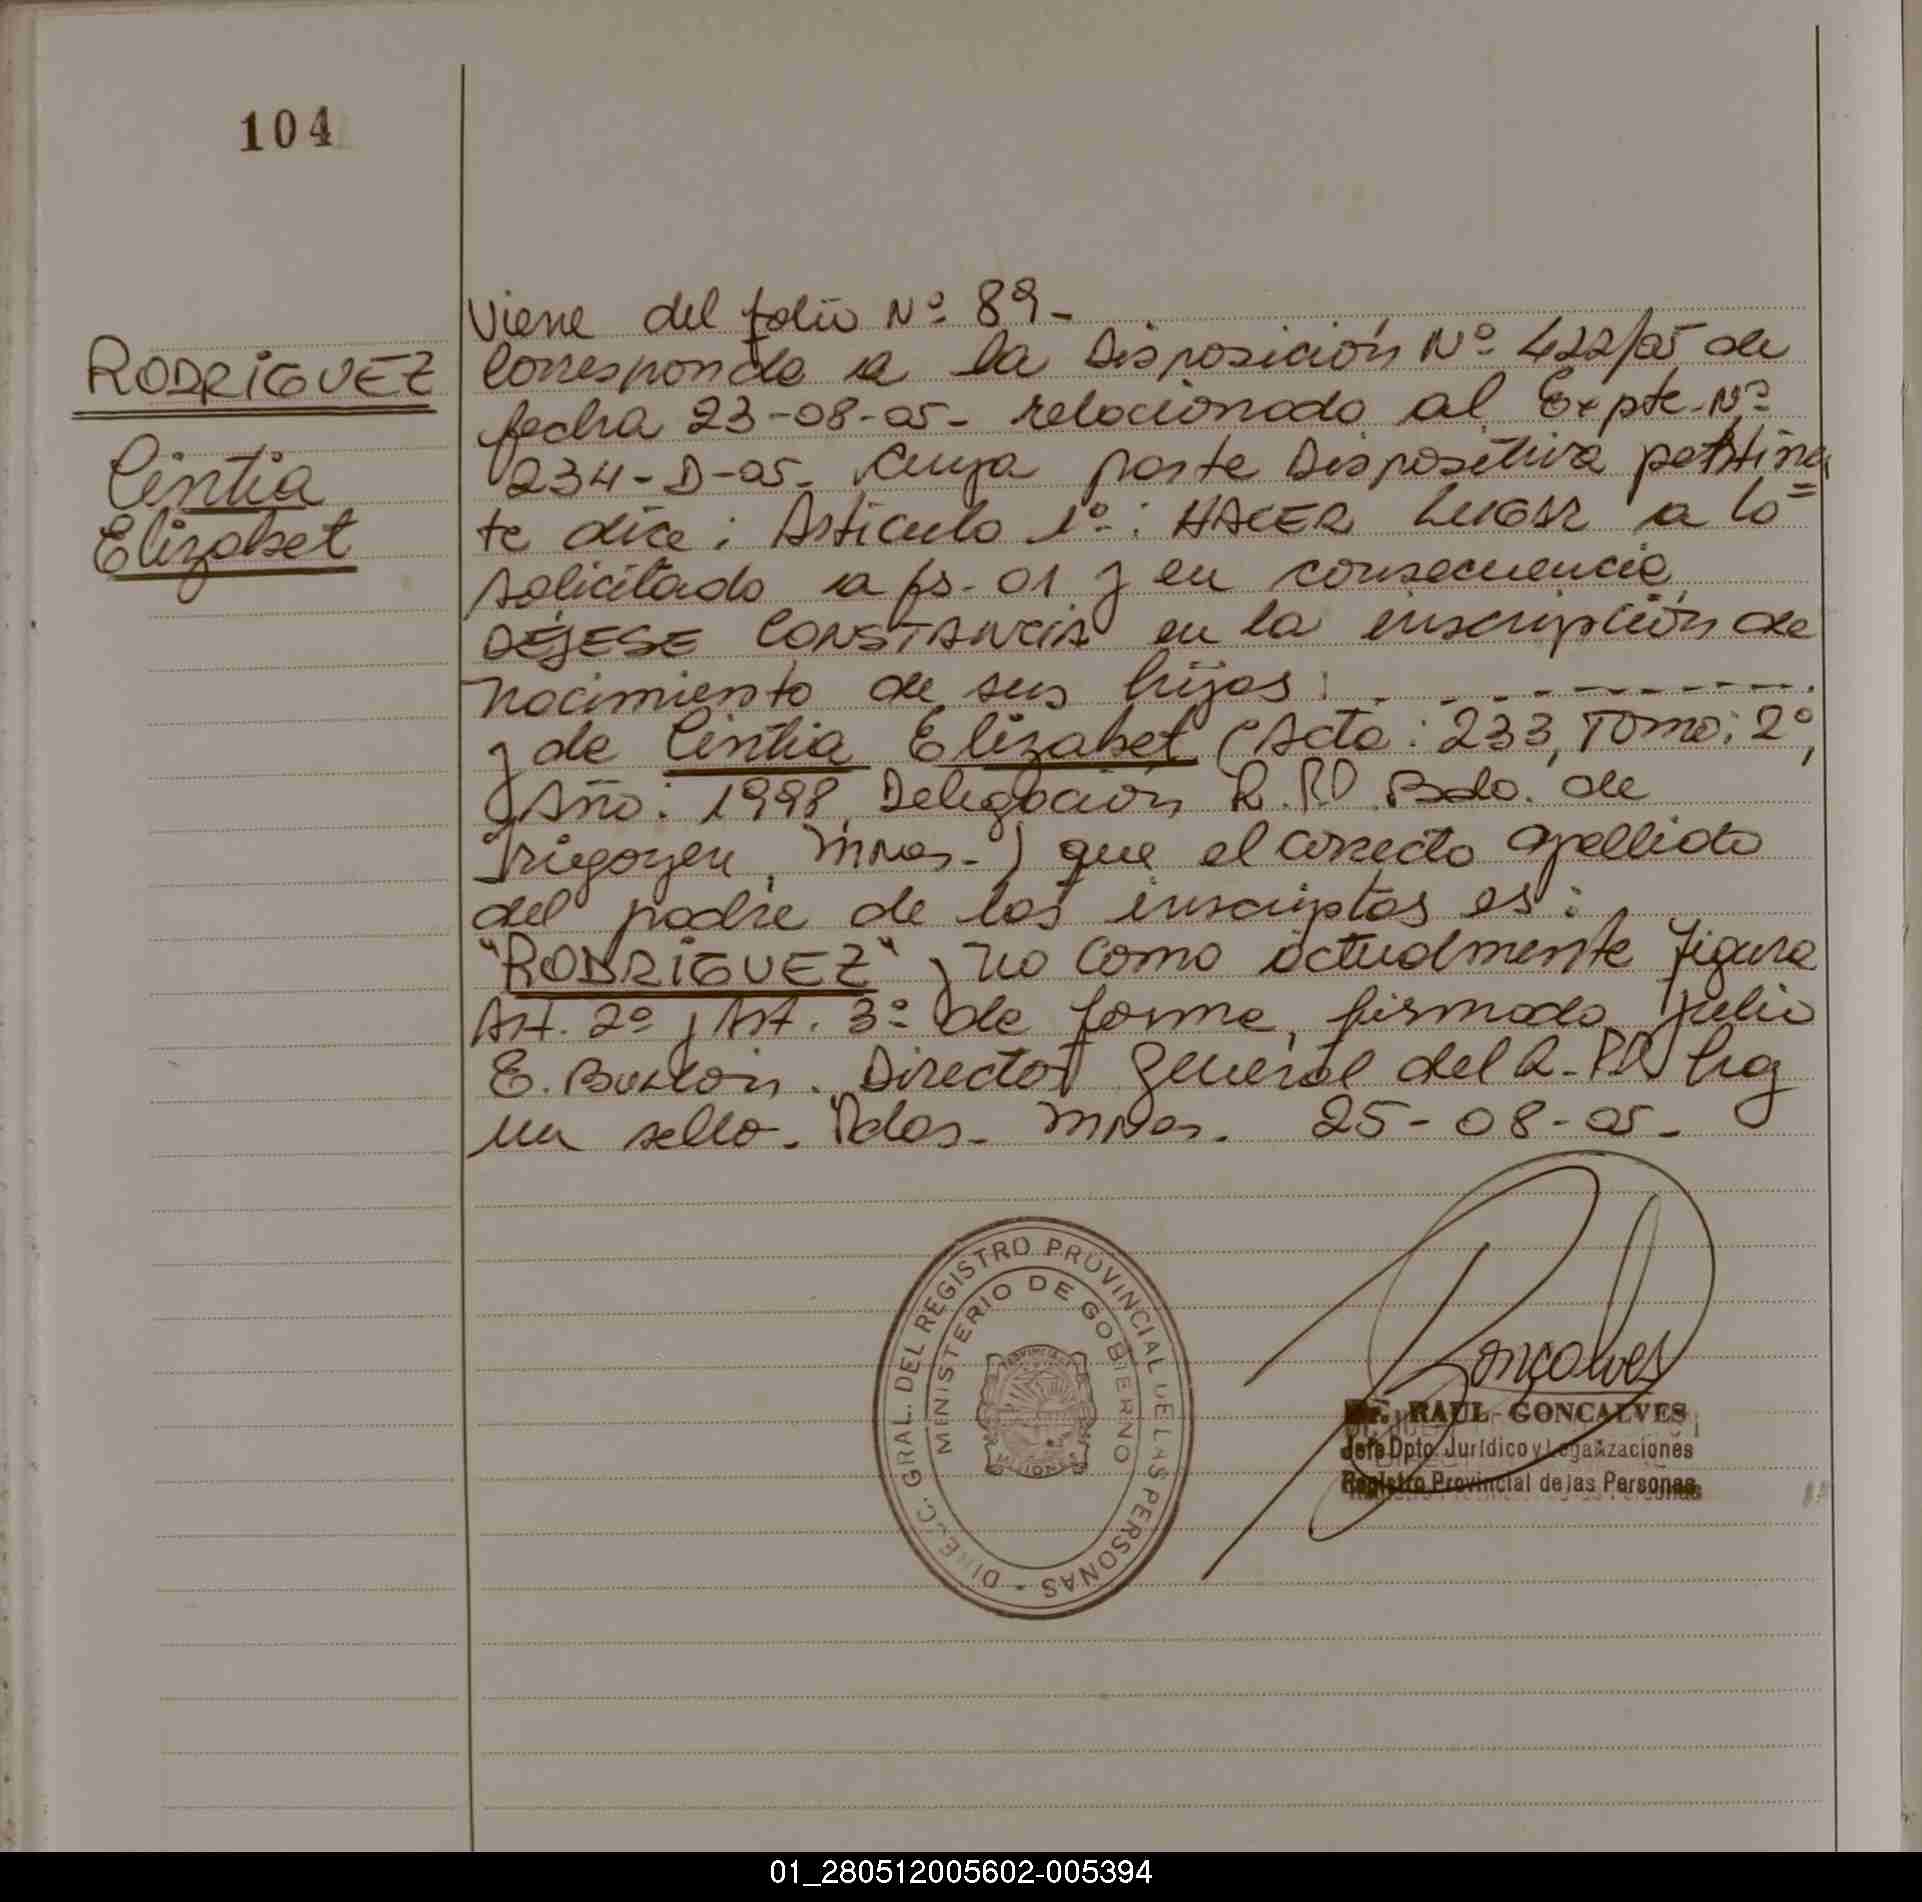 104
RODRÍGUEZ
Cintia
Elizabet
Viene del folio Nº 89-
Corresponde a la Disposición Nº 422/05 de
fecha 23-08-05- relacionado al Expte-Nº
234-D-05- Cuya parte Dispositiva pertinen
te dice: Artículo 1º: HACER LUGAR a lo=
solicitado a fs-01 y en consecuencia
DÉJESE CONSTANCIA en la inscripción de
nacimiento de sus hijos:
y de Cintia Elizabet (Acta: 233, Tomo: 2º,
Año: 1998, Delegación R.P.P. Bdo. de
Irigoyen, Mnes-) que el correcto apellido
del padre de los inscriptos es:
"RODRÍGUEZ" y no como actualmente figura
Art. 2º y Art. 3º de forma, firmado Julio
E. Director General del R.P.P. hay
un sello- Pdas- Mnes. 25-08-05-
DIRECC. GRAL. DEL REGISTRO PROVINCIAL DE LAS PERSONAS -
MINISTERIO DE GOBIERNO
PROVINCIA
MISIONES
Gonçalves
Dr. RAUL GONCALVES
Jefe Dpto. Jurídico y Legalizaciones
Registro Provincial de las Personas
01_280512005602-005394